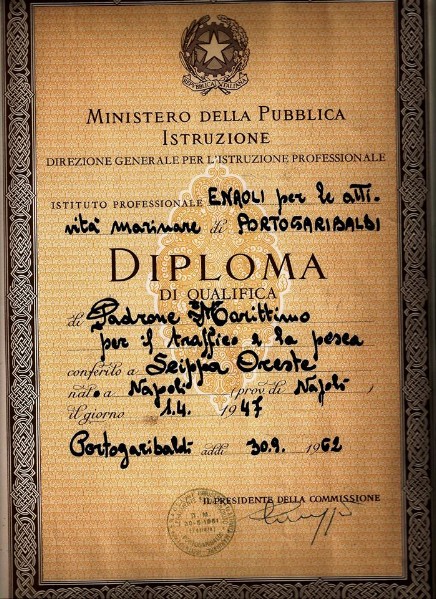 REPVBBLICA ITALIANA
MINISTERO DELLA PUBBLICA
ISTRUZIONE
DIREZIONE GENERALE PER L'ISTRUZIONE PROFESSIONALE
ISTITUTO PROFESSIONALE ENAOLI per le atti-
vità marinare di PORTOGARIBALDI
DIPLOMA
DI QUALIFICA
di Padrone Marittimo
per il traffico e la pesca
conferito a Scippa Oreste
nato a Napoli (prov di Napoli)
il giorno 1.4. 1947
Portogaribaldi addì 30.9. 1962
IL PRESIDENTE DELLA COMMISSIONE